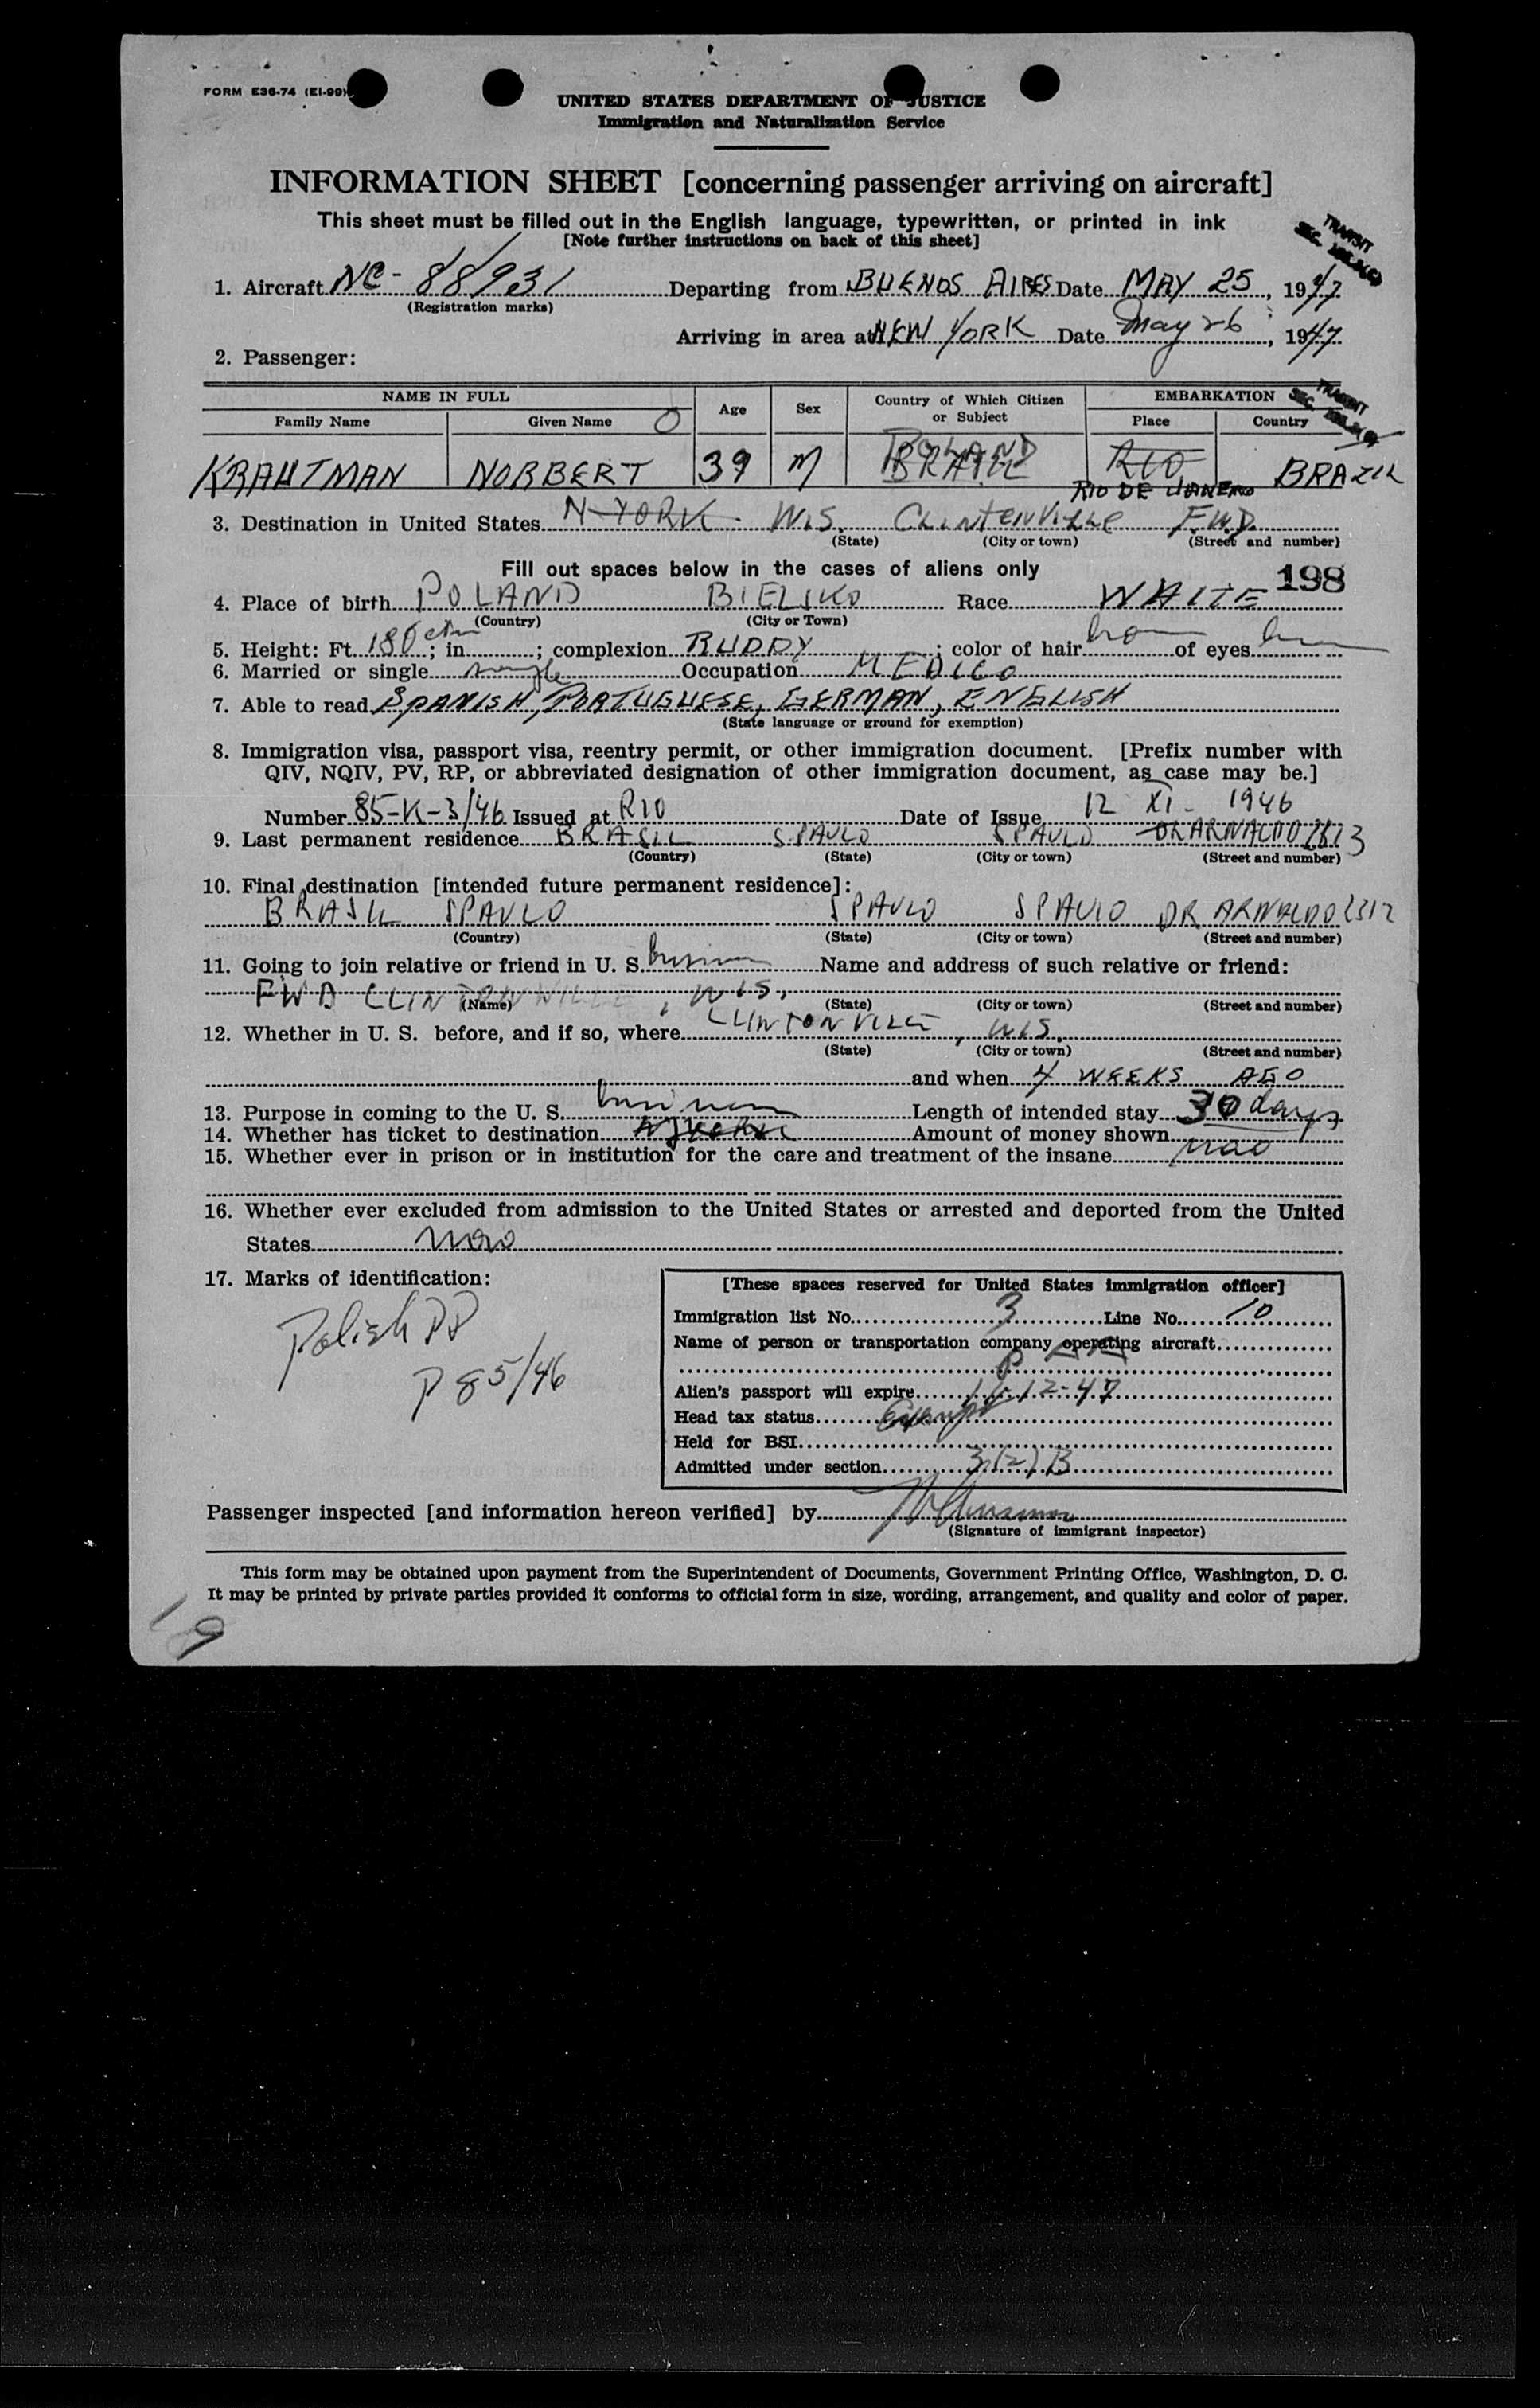 FORM E36-74 (EI-99)
UNITED STATES DEPARTMENT OF JUSTICE
Immigration and Naturalization Service
INFORMATION SHEET [concerning passenger arriving on aircraft]
This sheet must be filled out in the English language, typewritten, or printed in ink
[Note further instructions on back of this sheet]
TRANSIT
SEC.
1. Aircraft NC-88931 Departing from BUENOS AIRES Date MAY 25, 1947
(Registration marks)
Arriving in area at NEW YORK Date May 26, 1947
2. Passenger:
NAME IN FULL Age Sex Country of Which Citizen or Subject EMBARKATION
TRANSIT
SEC.
Family Name Given Name Place Country
KRAUTMAN NORBERT 39 M POLAND BRAZIL RIO BRAZIL
RIO DE JANEIRO
3. Destination in United States N-YORK WIS. CLINTENVILLE F.W.D.
(State) (City or town) (Street and number)
Fill out spaces below in the cases of aliens only
198
4. Place of birth POLAND BIELSKO Race WHITE
(Country) (City or Town)
5. Height: Ft. 180 ctm; in.; complexion RUDDY; color of hair brown of eyes
6. Married or single single Occupation MEDICO
7. Able to read SPANISH, PORTUGUESE, GERMAN, ENGLISH
(State language or ground for exemption)
8. Immigration visa, passport visa, reentry permit, or other immigration document. [Prefix number with
QIV, NQIV, PV, RP, or abbreviated designation of other immigration document, as case may be.]
Number 85-K-3/46 Issued at RIO Date of Issue 12 XI - 1946
9. Last permanent residence BRASIL S.PAULO S PAULO DR ARNALDO
(Country) (State) (City or town) (Street and number)
10. Final destination [intended future permanent residence]:
BRASIL SPAULO SPAULO SPAULO DR ARNALDO
(Country) (State) (City or town) (Street and number)
11. Going to join relative or friend in U. S. business Name and address of such relative or friend:
FWD CLINTONWILLE, WIS.
(Name) (State) (City or town) (Street and number)
12. Whether in U. S. before, and if so, where CLINTONVILLE, WIS.
(State) (City or town) (Street and number)
and when 4 WEEKS AGO
13. Purpose in coming to the U. S. business Length of intended stay 30 days
14. Whether has ticket to destination Amount of money shown
15. Whether ever in prison or in institution for the care and treatment of the insane nao
16. Whether ever excluded from admission to the United States or arrested and deported from the United
States nao
17. Marks of identification:
Polish PP
P 85/46
[These spaces reserved for United States immigration officer]
Immigration list No. 3 Line No. 10
Name of person or transportation company operating aircraft
P A A
Alien's passport will expire 11-12-47
Head tax status Exempt
Held for BSI
Admitted under section 3(2)B
Passenger inspected [and information hereon verified] by
(Signature of immigrant inspector)
This form may be obtained upon payment from the Superintendent of Documents, Government Printing Office, Washington, D. C.
It may be printed by private parties provided it conforms to official form in size, wording, arrangement, and quality and color of paper.
19